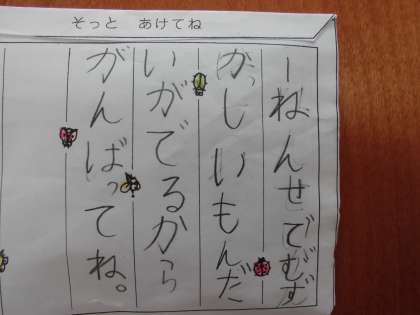 そっと あけてね
一ねんせでむず
かっしいもんだ
いがでるから
がんばってね。